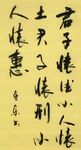 君子懷德小人懷
土君子懷刑小
人懷惠